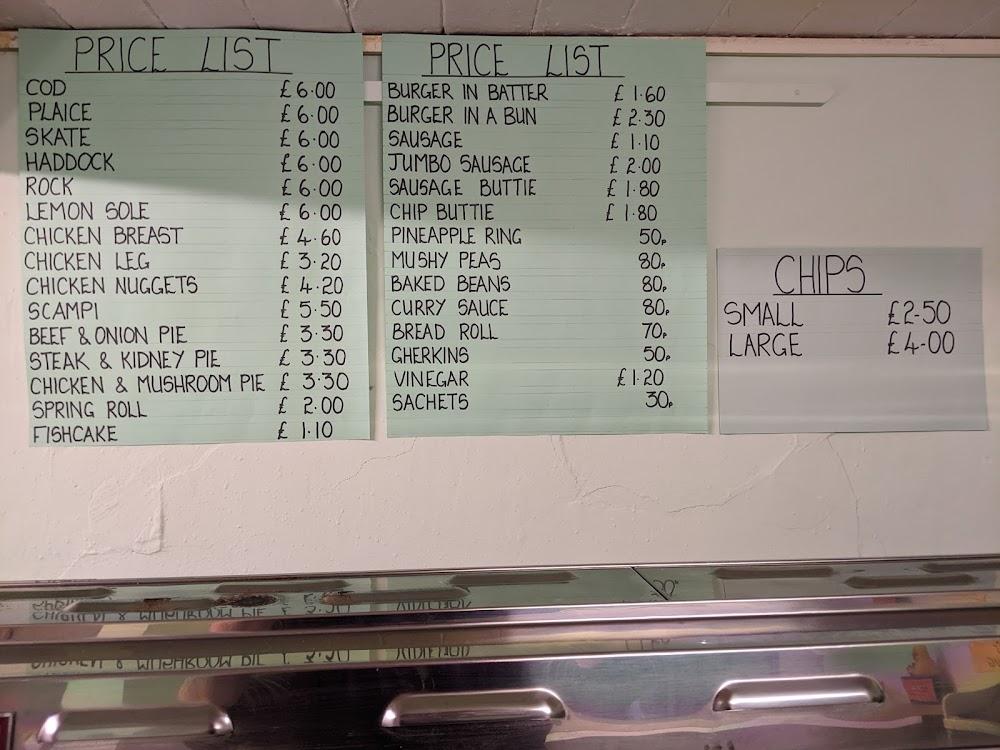 PRICE LIST
COD £6.00
PLAICE £6.00
SKATE £6.00
HADDOCK £6.00
ROCK £6.00
LEMON SOLE £6.00
CHICKEN BREAST £4.60
CHICKEN LEG £3.20
CHICKEN NUGGETS £4.20
SCAMPI £5.50
BEEF & ONION PIE £3.30
STEAK & KIDNEY PIE £3.30
CHICKEN & MUSHROOM PIE £3.30
SPRING ROLL £2.00
FISHCAKE £1.10
PRICE LIST
BURGER IN BATTER £1.60
BURGER IN A BUN £2.30
SAUSAGE £1.10
JUMBO SAUSAGE £2.00
SAUSAGE BUTTIE £1.80
CHIP BUTTIE £1.80
PINEAPPLE RING 50p
MUSHY PEAS 80p
BAKED BEANS 80p
CURRY SAUCE 80p
BREAD ROLL 70p
GHERKINS 50p
VINEGAR £1.20
SACHETS 30p
CHIPS
SMALL £2-50
LARGE £4-00